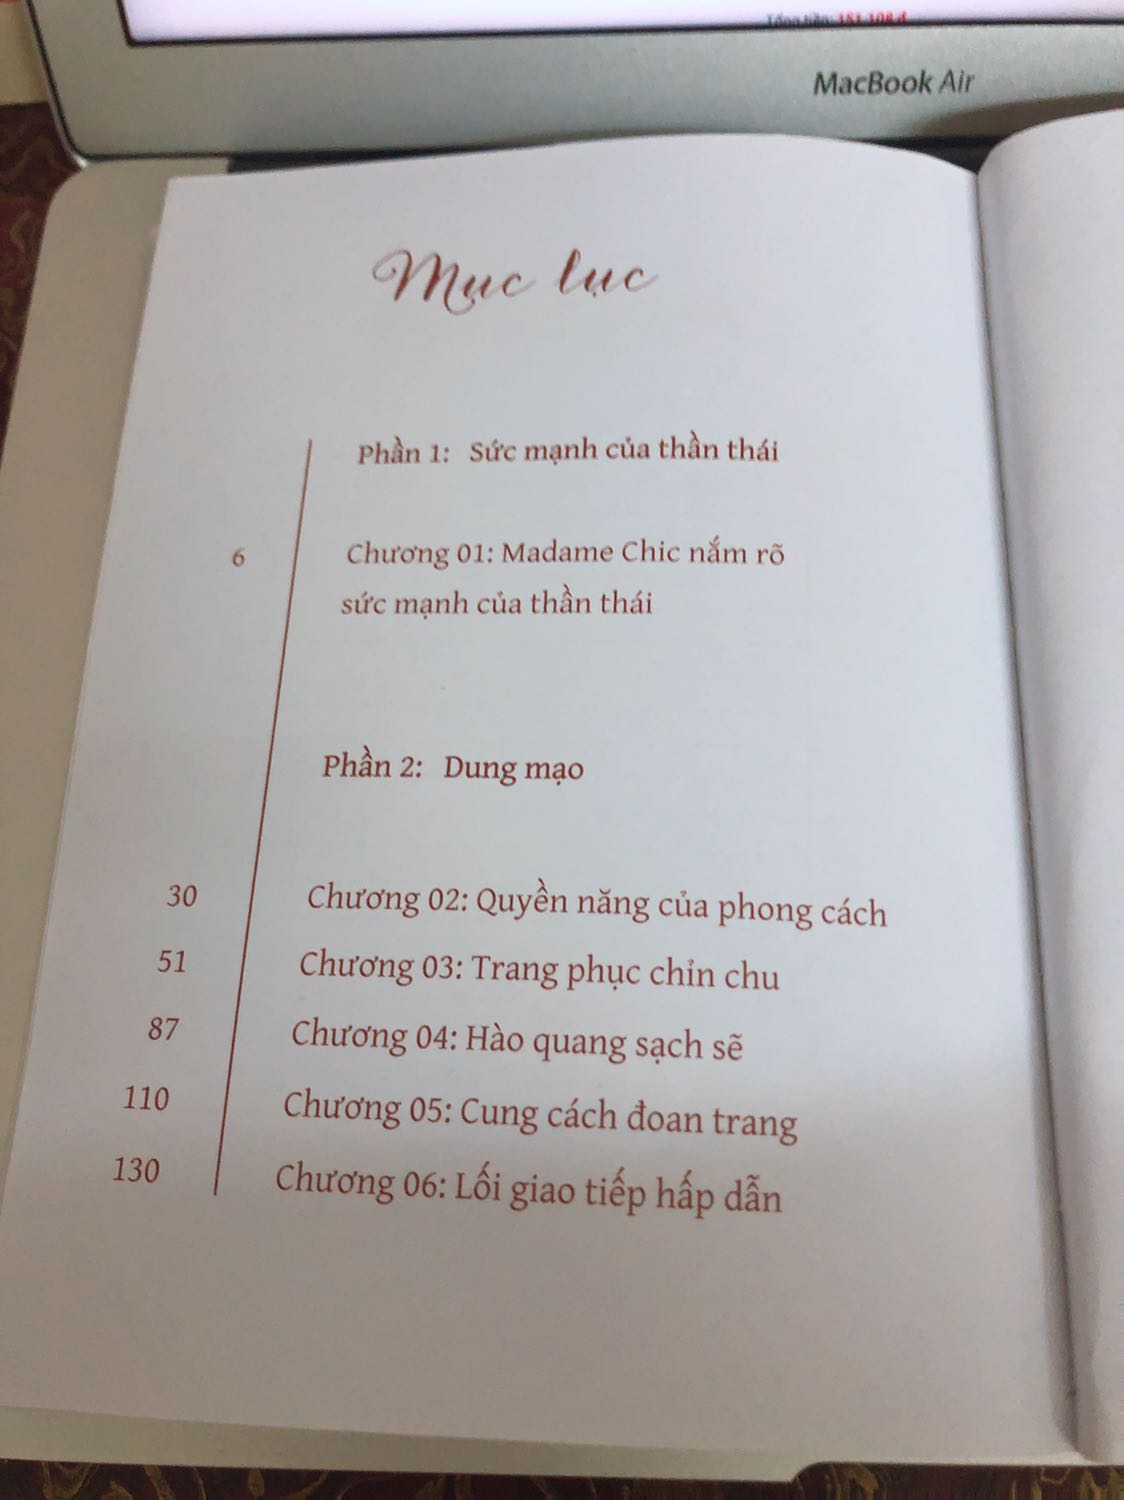 Tổng tiền: 151.108 đ
MacBook Air
Mục lục
Phần 1: Sức mạnh của thần thái
6 Chương 01: Madame Chic nắm rõ
sức mạnh của thần thái
Phần 2: Dung mạo
30 Chương 02: Quyền năng của phong cách
51 Chương 03: Trang phục chỉn chu
87 Chương 04: Hào quang sạch sẽ
110 Chương 05: Cung cách đoan trang
130 Chương 06: Lối giao tiếp hấp dẫn